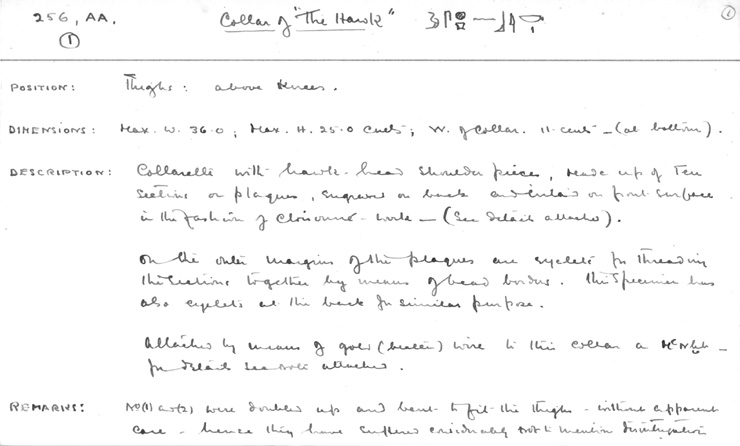 256, AA.
①
Collar of "The Hawk"
①
POSITION: Thighs: above knees.
DIMENSIONS: Max. W. 36.0; Max. H. 25.0 cents; W. of collar. 11. cents – (at bottom).
DESCRIPTION: Collarette with hawk-head shoulder pieces, made up of ten
sections or plaques, engraved on back and inlaid on front surface
in the fashion of Cloisonné-work – (See details attached).
On the outer margins of the plaques are eyelets for threading
the sections together by means of bead border. This specimen has
also eyelets at the back for similar purpose.
Attached by means of gold (beaten) wire to this collar a
for details see note attached.
REMARKS: No (1) and (2) were doubled up and bent to fit the thighs – without apparent
care – hence they have suffered considerably not to mention disintegration